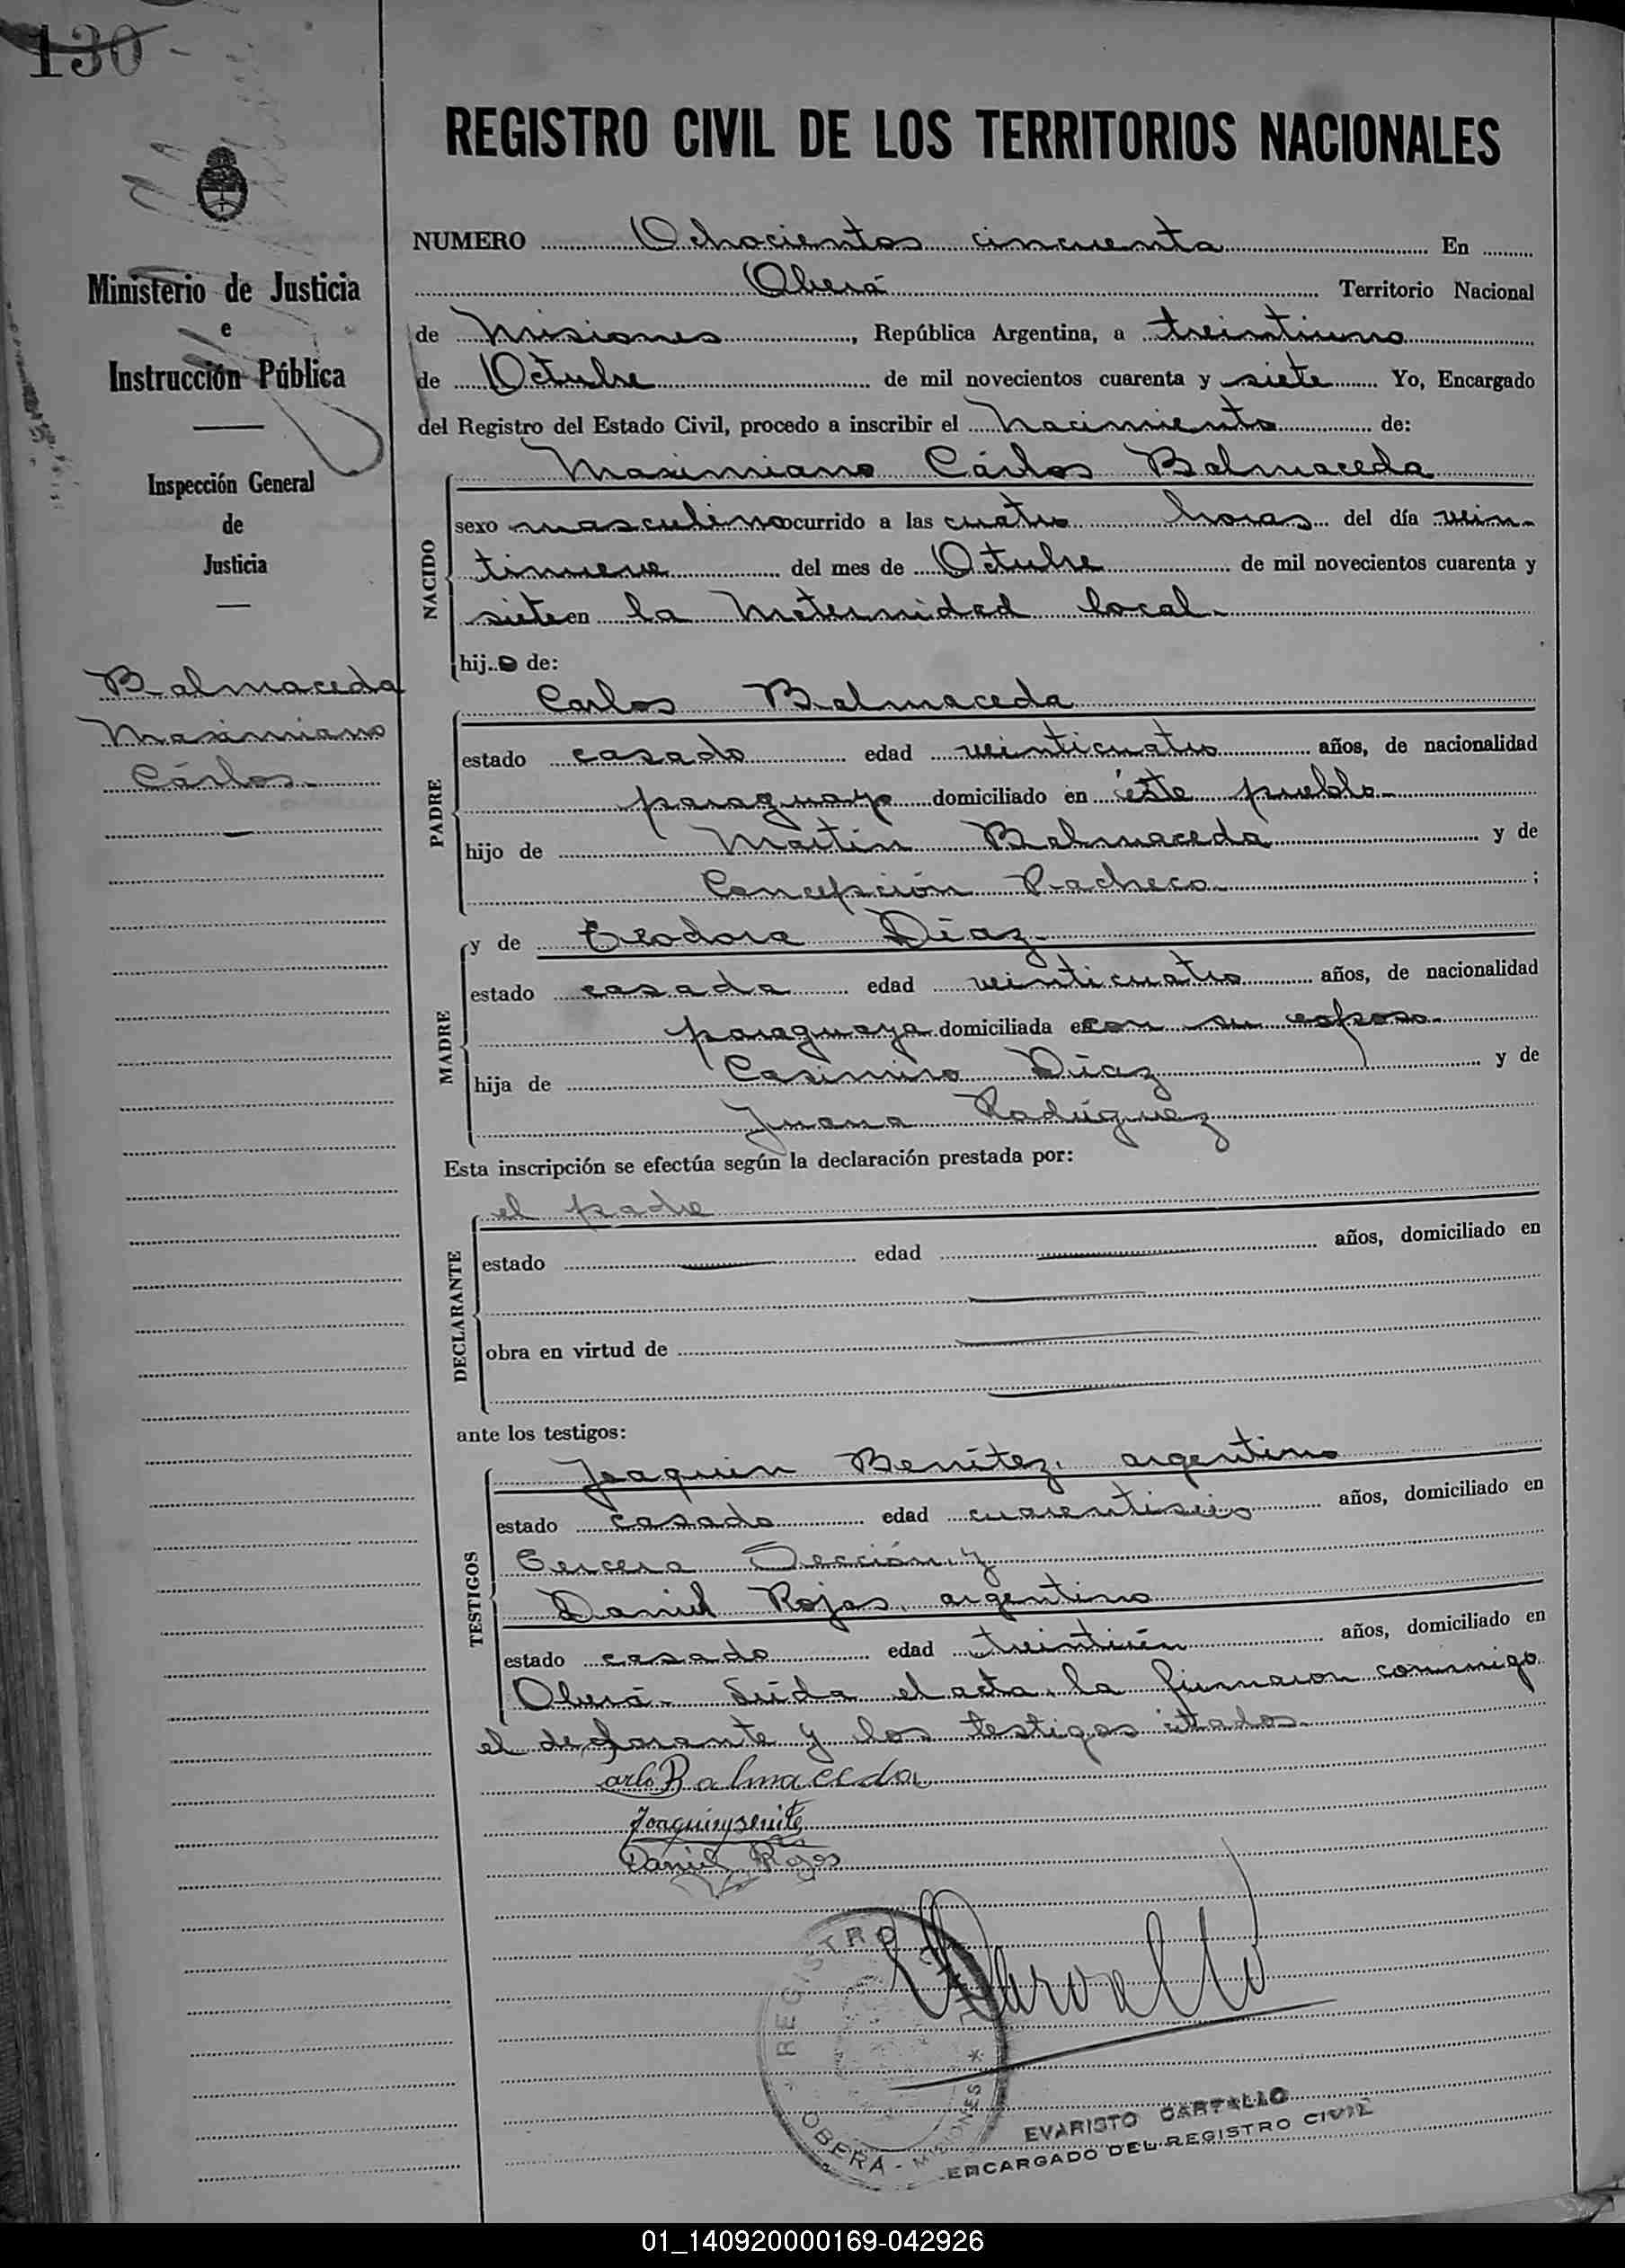 130
REGISTRO CIVIL DE LOS TERRITORIOS NACIONALES
Ministerio de Justicia
e
Instrucción Pública
Inspección General
de
Justicia
Balmaceda
Maximiano
Cárlos
NUMERO Ochocientos cincuenta En
Oberá Territorio Nacional
de Misiones, República Argentina, a treintiuno
de Octubre de mil novecientos cuarenta y siete Yo, Encargado
del Registro del Estado Civil, procedo a inscribir el Nacimiento de:
Maximiano Cárlos Balmaceda
NACIDO
sexo masculino ocurrido a las cuatro horas del día vein-
tinueve del mes de Octubre de mil novecientos cuarenta y
siete en la Maternidad local.
hijo de:
Carlos Balmaceda
PADRE
estado casado edad veinticuatro años, de nacionalidad
paraguayo domiciliado en éste pueblo
hijo de Martin Balmaceda y de
Concepción Pacheco ;
y de Teodora Díaz
MADRE
estado casada edad veinticuatro años, de nacionalidad
paraguaya domiciliada con su esposo
hija de Casimiro Díaz y de
Juana Rodríguez
Esta inscripción se efectúa según la declaración prestada por:
el padre
DECLARANTE
estado edad años, domiciliado en
obra en virtud de
ante los testigos:
Joaquin Benítez, argentino
TESTIGOS
estado casado edad cuarentiseis años, domiciliado en
Tercera Sección y
Daniel Rojas, argentino
estado casado edad treintiún años, domiciliado en
Oberá- Leída el acta, la firmaron conmigo
el declarante y los testigos citados.
Carlo Balmaceda
Daniel Rojas
REGISTRO
OBERA - MISIONES
EVARISTO
ENCARGADO DEL REGISTRO CIVIL
01_140920000169-042926